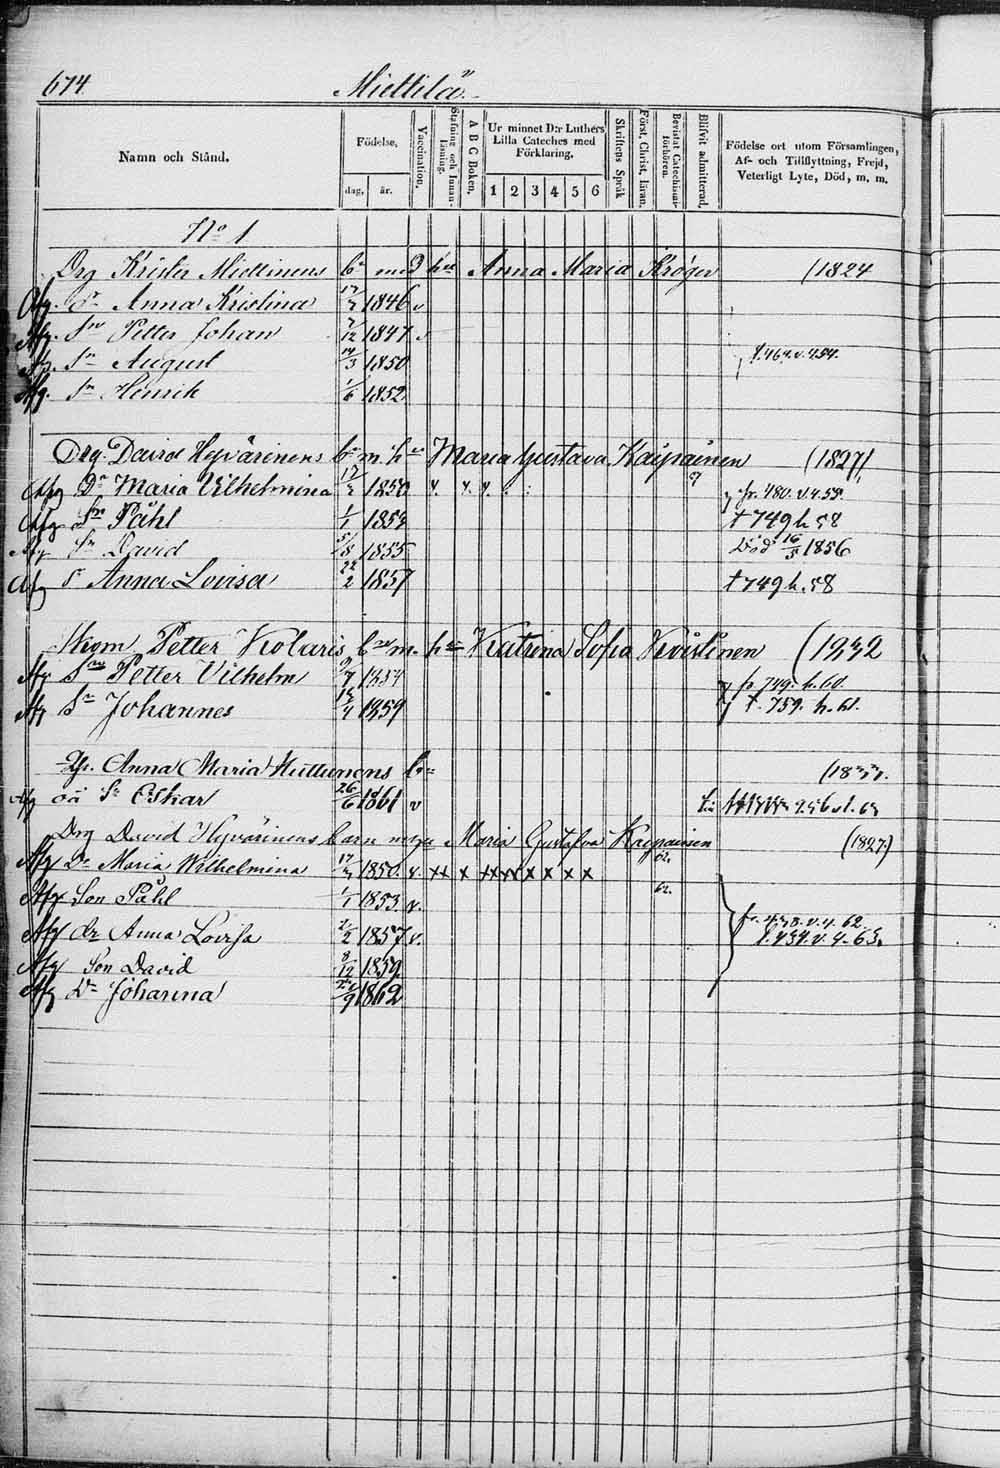 674. Miettilä.
Namn och Stånd.
Födelse,
dag, år.
Vaccination.
Stafning och Innanläsning.
A B C Boken.
Ur minnet D:r Luthers Lilla Cateches med Förklaring.
1 2 3 4 5 6
Skriftens Språk
Först. Christ. läran.
Bevistat Catechismiförhören.
Blifvit admitterad.
Födelse ort utom Församlingen, Af- och Tillflyttning, Frejd, Veterligt Lyte, Död, m. m.
No 1
Drg Krister Miettinens bn med hu Anna Maria Kröger (1824
Afg. Dr Anna Kristina 1846 v
Afg. Sn Petter Johan 7/12 1847 v
Afg. Sn August 14/3 1850 f. 464. v. 454.
Afg. Sn Henrik 1/6 1852
Drg. David Hyvärinens bn m. hu Maria Gustava Kaipainen (1827)
Afg Dr Maria Vilhelmina 1850 fr. 480. v. 4. 58.
Afg Sn Påhl 1/1 1853 t 749 h. 58
Afg Sn David 5/8 1855 Död 16/5 1856
Afg Dr Anna Lovisa 22/2 1857 t 749 h. 58
Petter Kolaris bn m. hu Katrina Sofia (1832
Afg Sn Petter Vilhelm 1857 fr 749. h. 60.
Afg Sn Johannes 1859 t. 759. h. 61.
Anna Maria Huttunens bn
Afg oä Sn Oskar 26/6 1861 v
Drg David Hyvärinens barn m hu Maria Gustafva Kaipainen (1827)
Afg Dr Maria Wilhelmina 1850. v. xx x xx xx x x x x 62.
Afg Son Påhl 1/1 1853 v. 62.
Afg dr Anna Lovisa 1857 v. fr. 438. v. 4. 62.
t. 434. v. 4. 63.
Afg Son David 8/12 1859
Afg Dr Johanna 1862